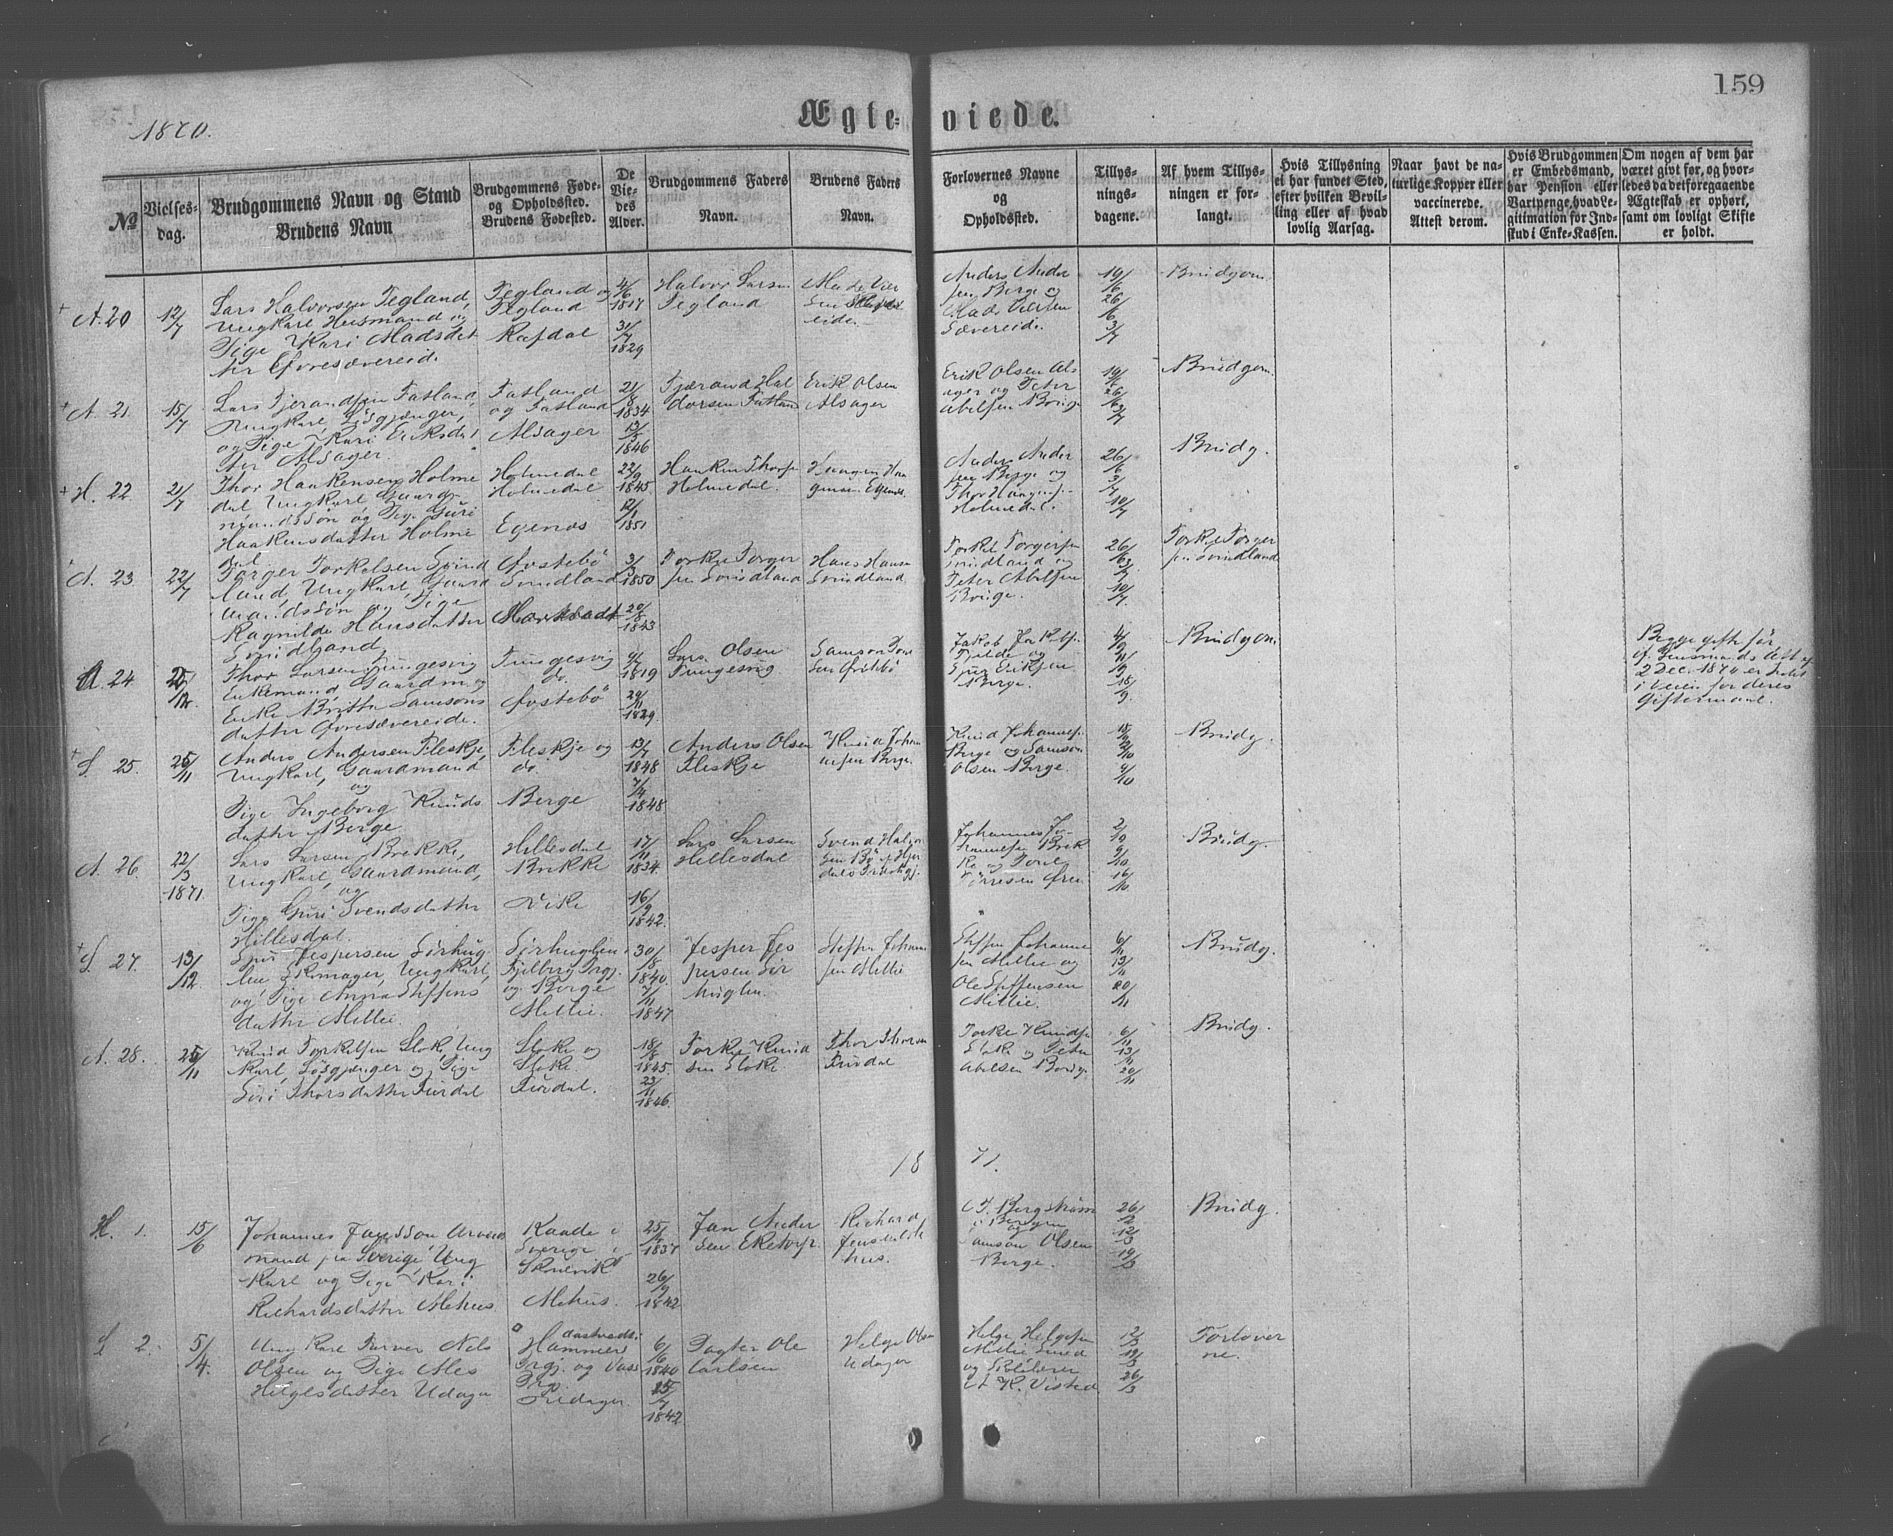 159
1870.
Ægteviede.
No
Vielses-
dag.
Brudgommens Navn og Stand
Brudens Navn
Brudgommens Føde-
og Opholdssted.
Brudens Fødested.
De
Vie-
des
Alder.
Brudgommens Faders
Navn.
Brudens Faders
Navn.
Forlovernes Navne
og
Opholdssted.
Tillys-
nings-
dagene.
Af hvem Tillys-
ningen er for-
langt.
Hvis Tillysning
ei har fundet Sted,
efter hvilken Bevil-
ling eller af hvad
lovlig Aarsag.
Naar havt de na-
turlige Kopper eller
vaccinerede.
Attest derom.
Hvis Brudgommen
er Embedsmand,
har Pension eller
Vartpenge, hvad Le-
gitimation for Ind-
skud i Enke-Kassen.
Om nogen af dem har
været givt før, og hvor-
ledes da det foregaaende
Ægteskab er ophørt,
samt om lovligt Skifte
er holdt.
A. 20
12/7
Lars Halvorsen Tegland,
Ungkarl Huusmand og
Pige Kari Madsdat
ter Øvresævereide
Tegland og
Tegland
Rafdal
4/6
1817
31/7
1829
Halvor Larsen
Tegland
Anders Ander
sen Berge og
Sævereide
19/6
26/6
3/7
Brudgom.
A. 21.
15/7
Lars Tjerandsen Fatland,
Ungkarl, Løsgjænger,
og Pige Kari Eriksdat
ter Alsager.
Fatland
og Fatland
Alsager
21/8
1834
13/5
1846
Tjærand Hal
dorsen Fatland
Erik Olsen
Alsager
Erik Olsen Als
ager og Peter
Abelsen Borge
19/6
26/6
3/7
Brudgom.
H. 22
21/7
Thor Haakensen Holme
dal Ungkarl Gaard
mandssøn og Pige Guri
Haakensdatter Holme
dal
Holmedal
Holmedal
Egenæs
22/9
1845
12/1
1851
Haaken Thorse
Holmedal.
Anders Ander
sen Berge og
Holmedal.
26/6
3/7
10/7
Brudg.
A. 23.
22/7
Torger Torkelsen Svind
land Ungkarl, Gaard
mandssøn og Pige
Ragnilde Hansdatter
Svindland
Øvstebö
Svindland
3/3
1850
20/8
1843
Torkel Torger
sen Svindland
Hans Hansen
Svindland
Torkel Torgersen
Svindland og
Peter Abelsen
Borge.
26/6
3/7
10/7
Torkel Torger
sen Svindland
A. 24
Thor Larsen Tungesvig
Enkemand Gaardm. og
Enke Britta Samsons
datter Øvresævereide.
Tungesvig
do.
Øvstebö
1819
29/11
1829
Lars Olsen
Tungesvig
Berge.
4/9
11/9
18/9
Brudgom.
Begge gifte før
2 Dec. 1870 er Intet
i Veien for deres
Giftermaal.
S. 25.
25/11
Anders Andersen Fleskje,
Ungkarl, Gaardmand
og
Pige Ingeborg Knuds
datter Berge
Fleskje og
do.
Berge
13/7
1848
7/4
1848
Anders Olsen
Fleskje
Knud Johan
nesen Berge.
Knud Johannes.
Berge og Samson
Olsen Berge.
Brudg.
A. 26.
22/3
1871
Lars Larsen Brekke,
Ungkarl, Gaardmand,
og
Pige Guri Svendsdatter
Hillesdal.
Hillesdal
Brekke
17/11
1834.
16/9
1842.
Lars Larsen
Hillesdal
Johannes Jo
hannesen Brek
ke og
2/10
9/10
16/10
Brudg.
S. 27.
13/12
Jespersen Sørhug
len Skomager, Ungkarl,
og Pige Anna Steffens
datter Mellie.
Sørhuglen i
Fjelberg Prgj.
og Berge
Mellie.
30/8
1840.
7/11
1847
Jesper Jes
persen Sør
huglen
Steffen Johanne
sen Mellie
Steffen Johanne
sen Mellie og
Ole Steffensen
Mellie.
6/11
13/11
20/11
Brudg.
A. 28.
25/11
Knud Torkelsen Sloke, Ung
karl, Løsgjænger og Pige
Siri Thorsdatter Furdal
Sloke og
Sloke.
Furdal.
18/8
1845.
23/11
1846.
Torkel Knud
sen Sloke
Thor Thorsen
Furdal
Torkel Knudse
Sloke og Peter
Abelsen Borge
6/11
13/11
20/11
Brudg.
1871.
H. 1.
15/6
Johannes Janssøn Arveds
mand fra Sverige, Ung
karl og Pige Kari
Richardsdatter Mehus
Raade i
Sverige i
Skonevik
Mehus.
25/4
1837
26/9
1842
Jan Ander
sen Eketorp.
Richard
Jensen Me
hus.
C. J. Bergstrøm
i Bergen
og
Samson Olsen
Berge.
26/2
12/3
19/3
Brudg.
S. 2.
5/4.
Ungkarl Farver Nels
Olsen og Pige Ales
Helgesdatter Udager
Hammers
Prgj. og Vass
Prgj.
Udager
6/6
1840
25/7
1842
Pagter Ole
Carlsen
Helge Olsen
Udager
Helge Helgesen
Mellie Smed
og Skolelærer
K. Visted
12/3
19/3
26/3
Forlover
ne.